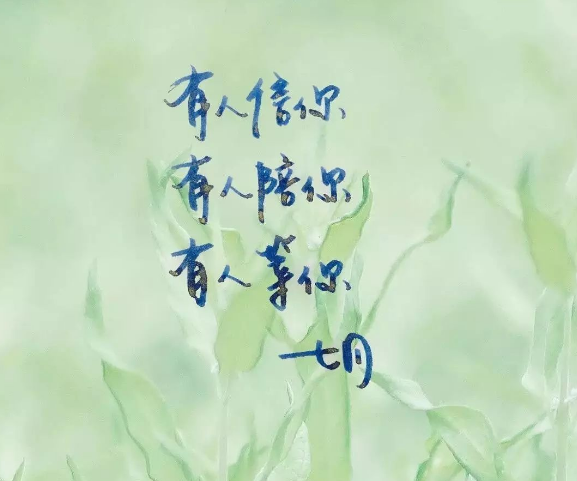 有人信你
有人陪你
有人等你
七月